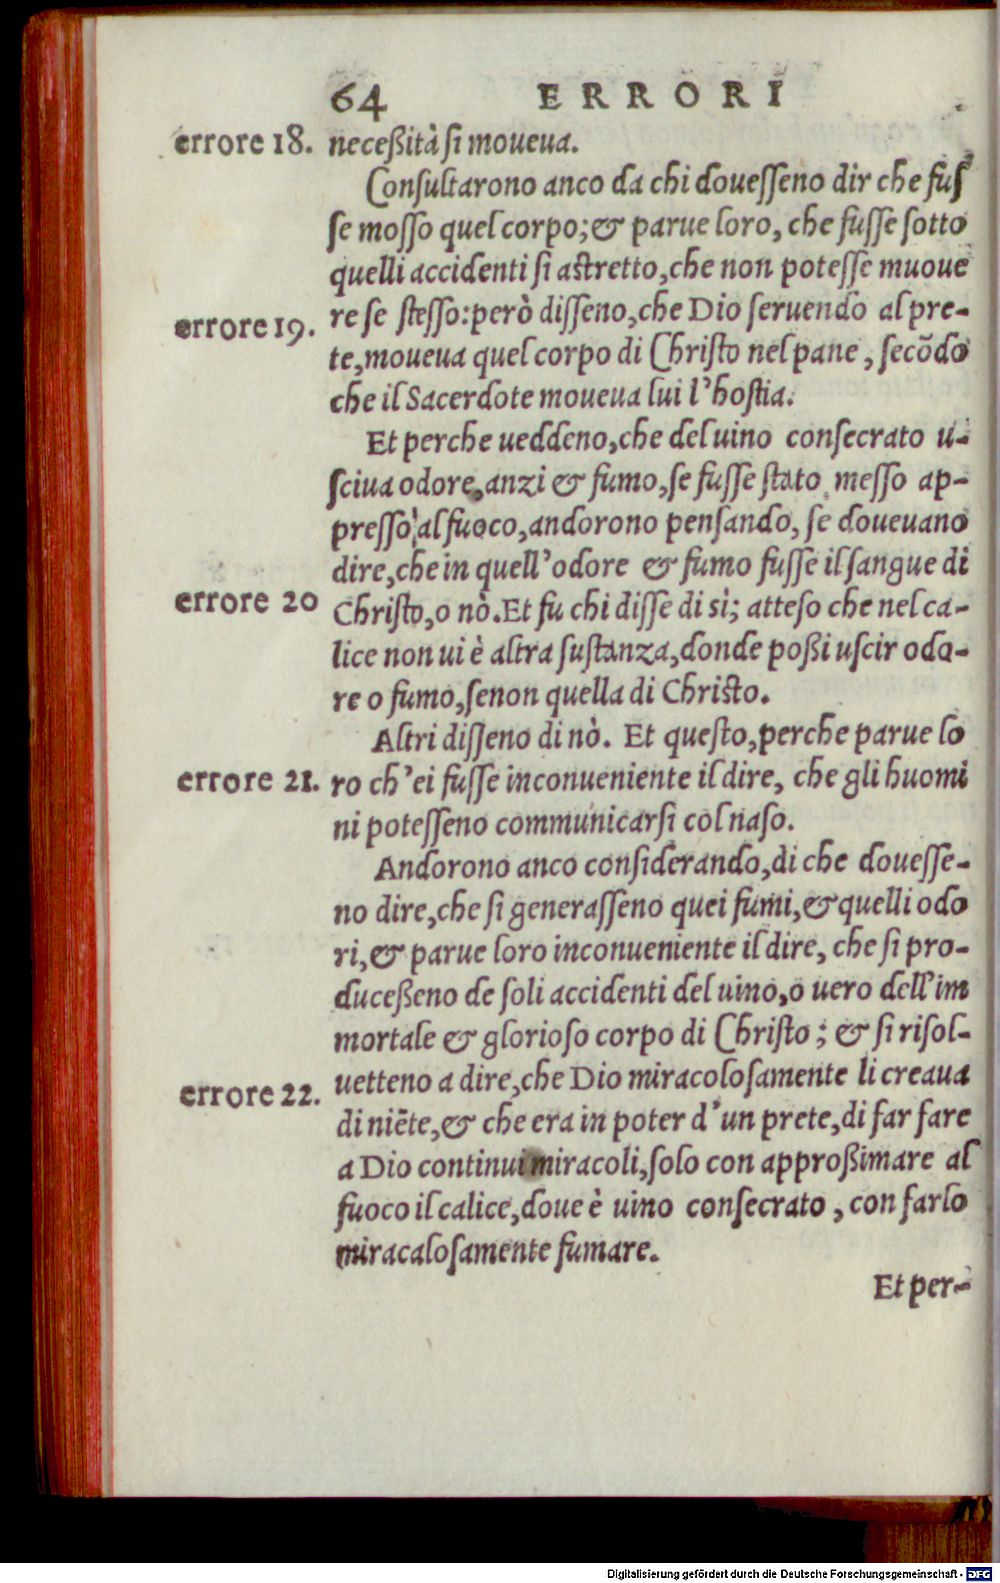 64 ERRORI
errore 18. neceßità si moueua.
Consultarono anco da chi douesseno dir che fus
se mosso quel corpo; & parue loro, che fusse sotto
quelli accidenti si astretto, che non potesse muoue
errore 19. re se stesso: però disseno, che Dio seruendo al pre-
te, moueua quel corpo di Christo nel pane, secõdo
che il Sacerdote moueua lui l'hostia.
Et perche ueddeno, che del uino consecrato u-
sciua odore, anzi & fumo, se fusse stato messo ap-
presso al fuoco, andorono pensando, se doueuano
dire, che in quell'odore & fumo fusse il sangue di
errore 20 Christo, o nò. Et fu chi disse di sì; atteso che nel ca-
lice non ui è altra sustanza, donde poßi uscir odo-
re o fumo, senon quella di Christo.
Altri disseno di nò. Et questo, perche parue lo
errore 21. ro ch'ei fusse inconueniente il dire, che gli huomi
ni potesseno communicarsi col naso.
Andorono anco considerando, di che douesse-
no dire, che si generasseno quei fumi, & quelli odo
ri, & parue loro inconueniente il dire, che si pro-
duceßeno de soli accidenti del uino, o uero dell'im
mortale & glorioso corpo di Christo; & si risol-
errore 22. uetteno a dire, che Dio miracolosamente li creaua
di niẽte, & che era in poter d'un prete, di far fare
a Dio continui miracoli, solo con approßimare al
fuoco il calice, doue è uino consecrato, con farlo
miracalosamente fumare.
Et per-
Digitalisierung gefördert durch die Deutsche Forschungsgemeinschaft - DFG